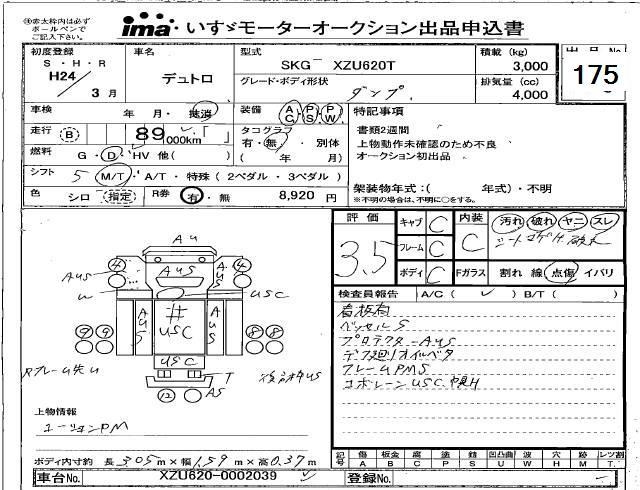 ㊟赤太枠内は必ず
ボールペンで
ご記入下さい。
ima いすゞモーターオークション出品申込書
初度登録
S・H・R
H24/3月
車名
デュトロ
型式
SKG XZU620T
グレード・ボディ形状
ダンプ
積載 (kg)
3,000
排気量 (cc)
4,000
出品No.
175
車検 年 月・抹消
走行 B 89,000km「 」
燃料 G・D・HV 他( )
装備 AC・PS・PW
タコグラフ
有・無・別体
( 年 月)
特記事項
書類2週間
上物動作未確認のため不良
オークション初出品
シフト 5 M/T・A/T・特殊(2ペダル・3ペダル)
色 シロ (指定) R券 有・無 8,920 円
架装物年式:( 年式)・不明
※不明の場合は、不明に○をする。
評価
3.5
キャブ C
フレーム C
ボディ C
内装 C
汚れ・破れ・ヤニ・スレ
Fガラス 割れ 線 点傷 イバリ
検査員報告 A/C( ✓ ) B/T( )
看板有
ベッセルS
プロテクターAUS
デフ廻りオイルベタ
フレームPMS
AU
4 AUS 4
AUS
U
USC
AUS # USC AUS
9 9 8 8
USC
T
12 AS
上物情報
ボディ内寸約 長3.05m×幅1.59m×高0.37m
記号
傷 A
板金 B
腐 C
塗 P
錆 S
凹凸曲 U
波 W
穴 H
跡 M
レツ割 T
車台No. XZU620-0002039
登録No.